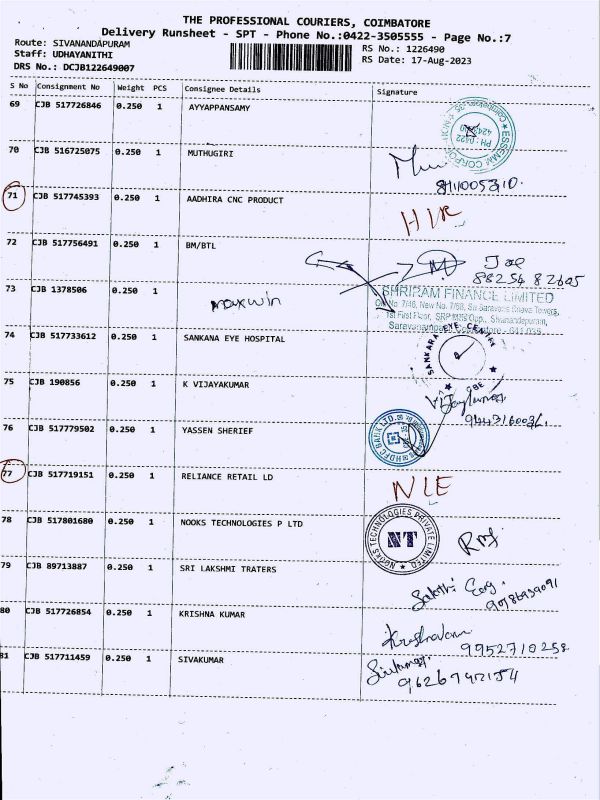 THE PROFESSIONAL COURIERS, COIMBATORE
Delivery Runsheet - SPT - Phone No.:0422-3505555 - Page No.:7
Route: SIVANANDAPURAM
Staff: UDHAYANITHI
RS No.: 1226490
DRS No.: DCJB122649007
RS Date: 17-Aug-2023
S No Consignment No Weight PCS Consignee Details Signature
69 CJB 517726846 0.250 1 AYYAPPANSAMY
70 CJB 516725075 0.250 1 MUTHUGIRI
71 CJB 517745393 0.250 1 AADHIRA CNC PRODUCT
72 CJB 517756491 0.250 1 BM/BTL
88254 82605
73 CJB 1378506 0.250 1 maxwin
SHRIRAM FINANCE LIMITED
74 CJB 517733612 0.250 1 SANKANA EYE HOSPITAL
SANKARA EYE CENTRE
75 CJB 190856 0.250 1 K VIJAYKUMAR
76 CJB 517779502 0.250 1 YASSEN SHERIEF
HDFC BANK LTD.
77 CJB 517719151 0.250 1 RELIANCE RETAIL LD
78 CJB 517801680 0.250 1 NOOKS TECHNOLOGIES P LTD
NOOKS TECHNOLOGIES PRIVATE LIMITED
NT
79 CJB 89713887 0.250 1 SRI LAKSHMI TRATERS
80 CJB 517726854 0.250 1 KRISHNA KUMAR
9952710258
81 CJB 517711459 0.250 1 SIVAKUMAR